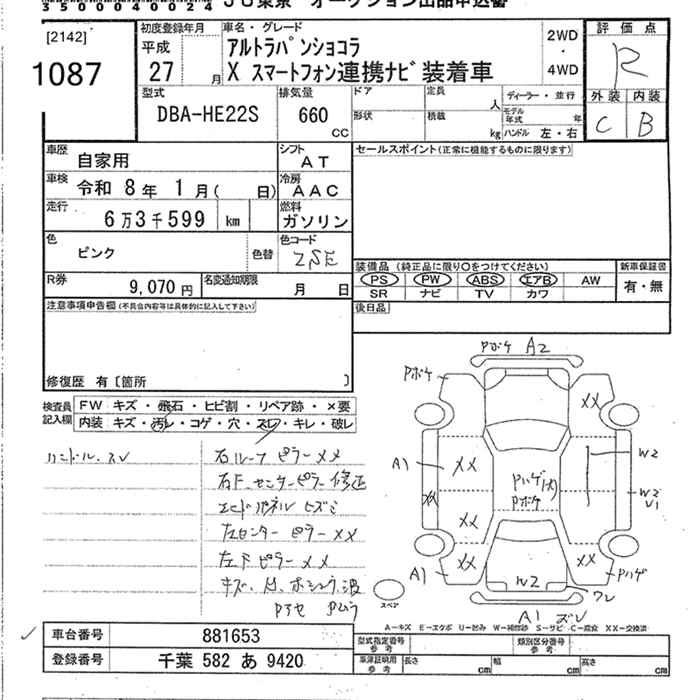 [2142]
1087
初度登録年月
平成
27 月
車名・グレード
アルトラパンショコラ
X スマートフォン連携ナビ装着車
2WD
・
4WD
評価点
R
外装 内装
C B
型式
DBA-HE22S
排気量
660
CC
ドア
形状
定員 人
積載 kg
ディーラー・並行
モデル年式 年
ハンドル 左・右
車歴
自家用
シフト
AT
車検
令和 8年 1月( 日)
冷房
AAC
走行
6万3千599 km
燃料
ガソリン
色
ピンク
色替
色コード
ZSE
R券
9,070円
名変通知期限
月 日
セールスポイント(正常に機能するものに限ります)
装備品 (純正品に限り○をつけてください)
PS PW ABS エアB AW
SR ナビ TV カワ
新車保証書
有・無
後日品
注意事項申告欄(不具合内容等は具体的に記入して下さい)
修復歴 有〔箇所 〕
検査員
記入欄
FW キズ・飛石・ヒビ割・リペア跡・×要
内装 キズ・汚レ・コゲ・穴・スレ・キレ・破レ
ハンドル スレ
右ルーフピラーXX
右F.センターピラー修正
エンドパネル ヒズミ
左センターピラーXX
左Fピラー XX
Pボケ A2
Pボケ
XX
A1
XX
XX
XX
XX
XX
Pハゲ(大)
Pボケ
W2
W2
U1
A1
Pハゲ
W2
ワレ
A1 ズレ
スペア
A-キズ E-エクボ U-凹み W-補修跡 S-サビ C-腐食 XX-交換済
車台番号
881653
登録番号
千葉 582 あ 9420
型式指定番号
参考
類別区分番号
参考
車庫証明用
参考
長さ cm
幅 cm
高さ cm